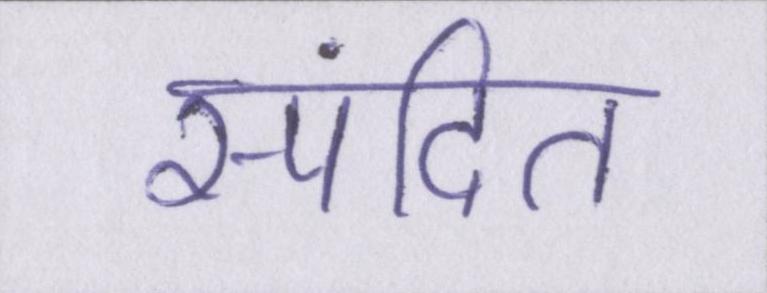 स्पंदित